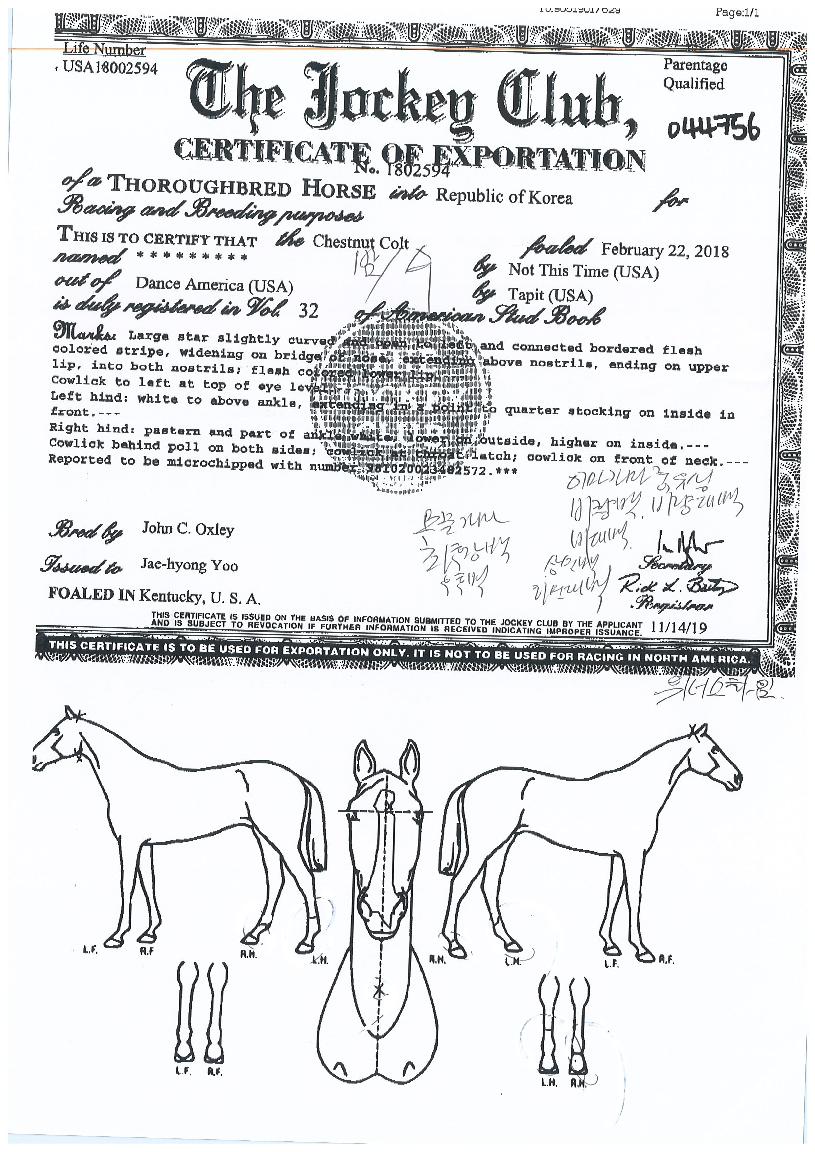 Page:1/1
Life Number
USA18002594
Parentage
Qualified
The Jockey Club,
044756
CERTIFICATE OF EXPORTATION
No. 1802594
of a THOROUGHBRED HORSE into Republic of Korea for
Racing and Breeding purposes
THIS IS TO CERTIFY THAT the Chestnut Colt foaled February 22, 2018
named * * * * * * * * * by Not This Time (USA)
out of Dance America (USA) by Tapit (USA)
is duly registered in Vol. 32 of American Stud Book
Marks: Large star slightly curved and connected bordered flesh
colored stripe, widening on bridge of nose, extending above nostrils, ending on upper
lip, into both nostrils; flesh colored lower lip.
Cowlick to left at top of eye level.
Left hind: white to above ankle, extending in a point to quarter stocking on inside in
front.---
Right hind: pastern and part of ankle white, lower on outside, higher on inside.---
Cowlick behind poll on both sides; cowlick at throat latch; cowlick on front of neck.---
Reported to be microchipped with number 981020023482572.***
Bred by John C. Oxley
Issued to Jae-hyong Yoo
Secretary
FOALED IN Kentucky, U. S. A.
Registrar
THIS CERTIFICATE IS ISSUED ON THE BASIS OF INFORMATION SUBMITTED TO THE JOCKEY CLUB BY THE APPLICANT
AND IS SUBJECT TO REVOCATION IF FURTHER INFORMATION IS RECEIVED INDICATING IMPROPER ISSUANCE. 11/14/19
THIS CERTIFICATE IS TO BE USED FOR EXPORTATION ONLY. IT IS NOT TO BE USED FOR RACING IN NORTH AMERICA.
L.F. R.F R.H. L.H. R.H. L.H. L.F. R.F.
L.F. R.F. L.H. R.H.